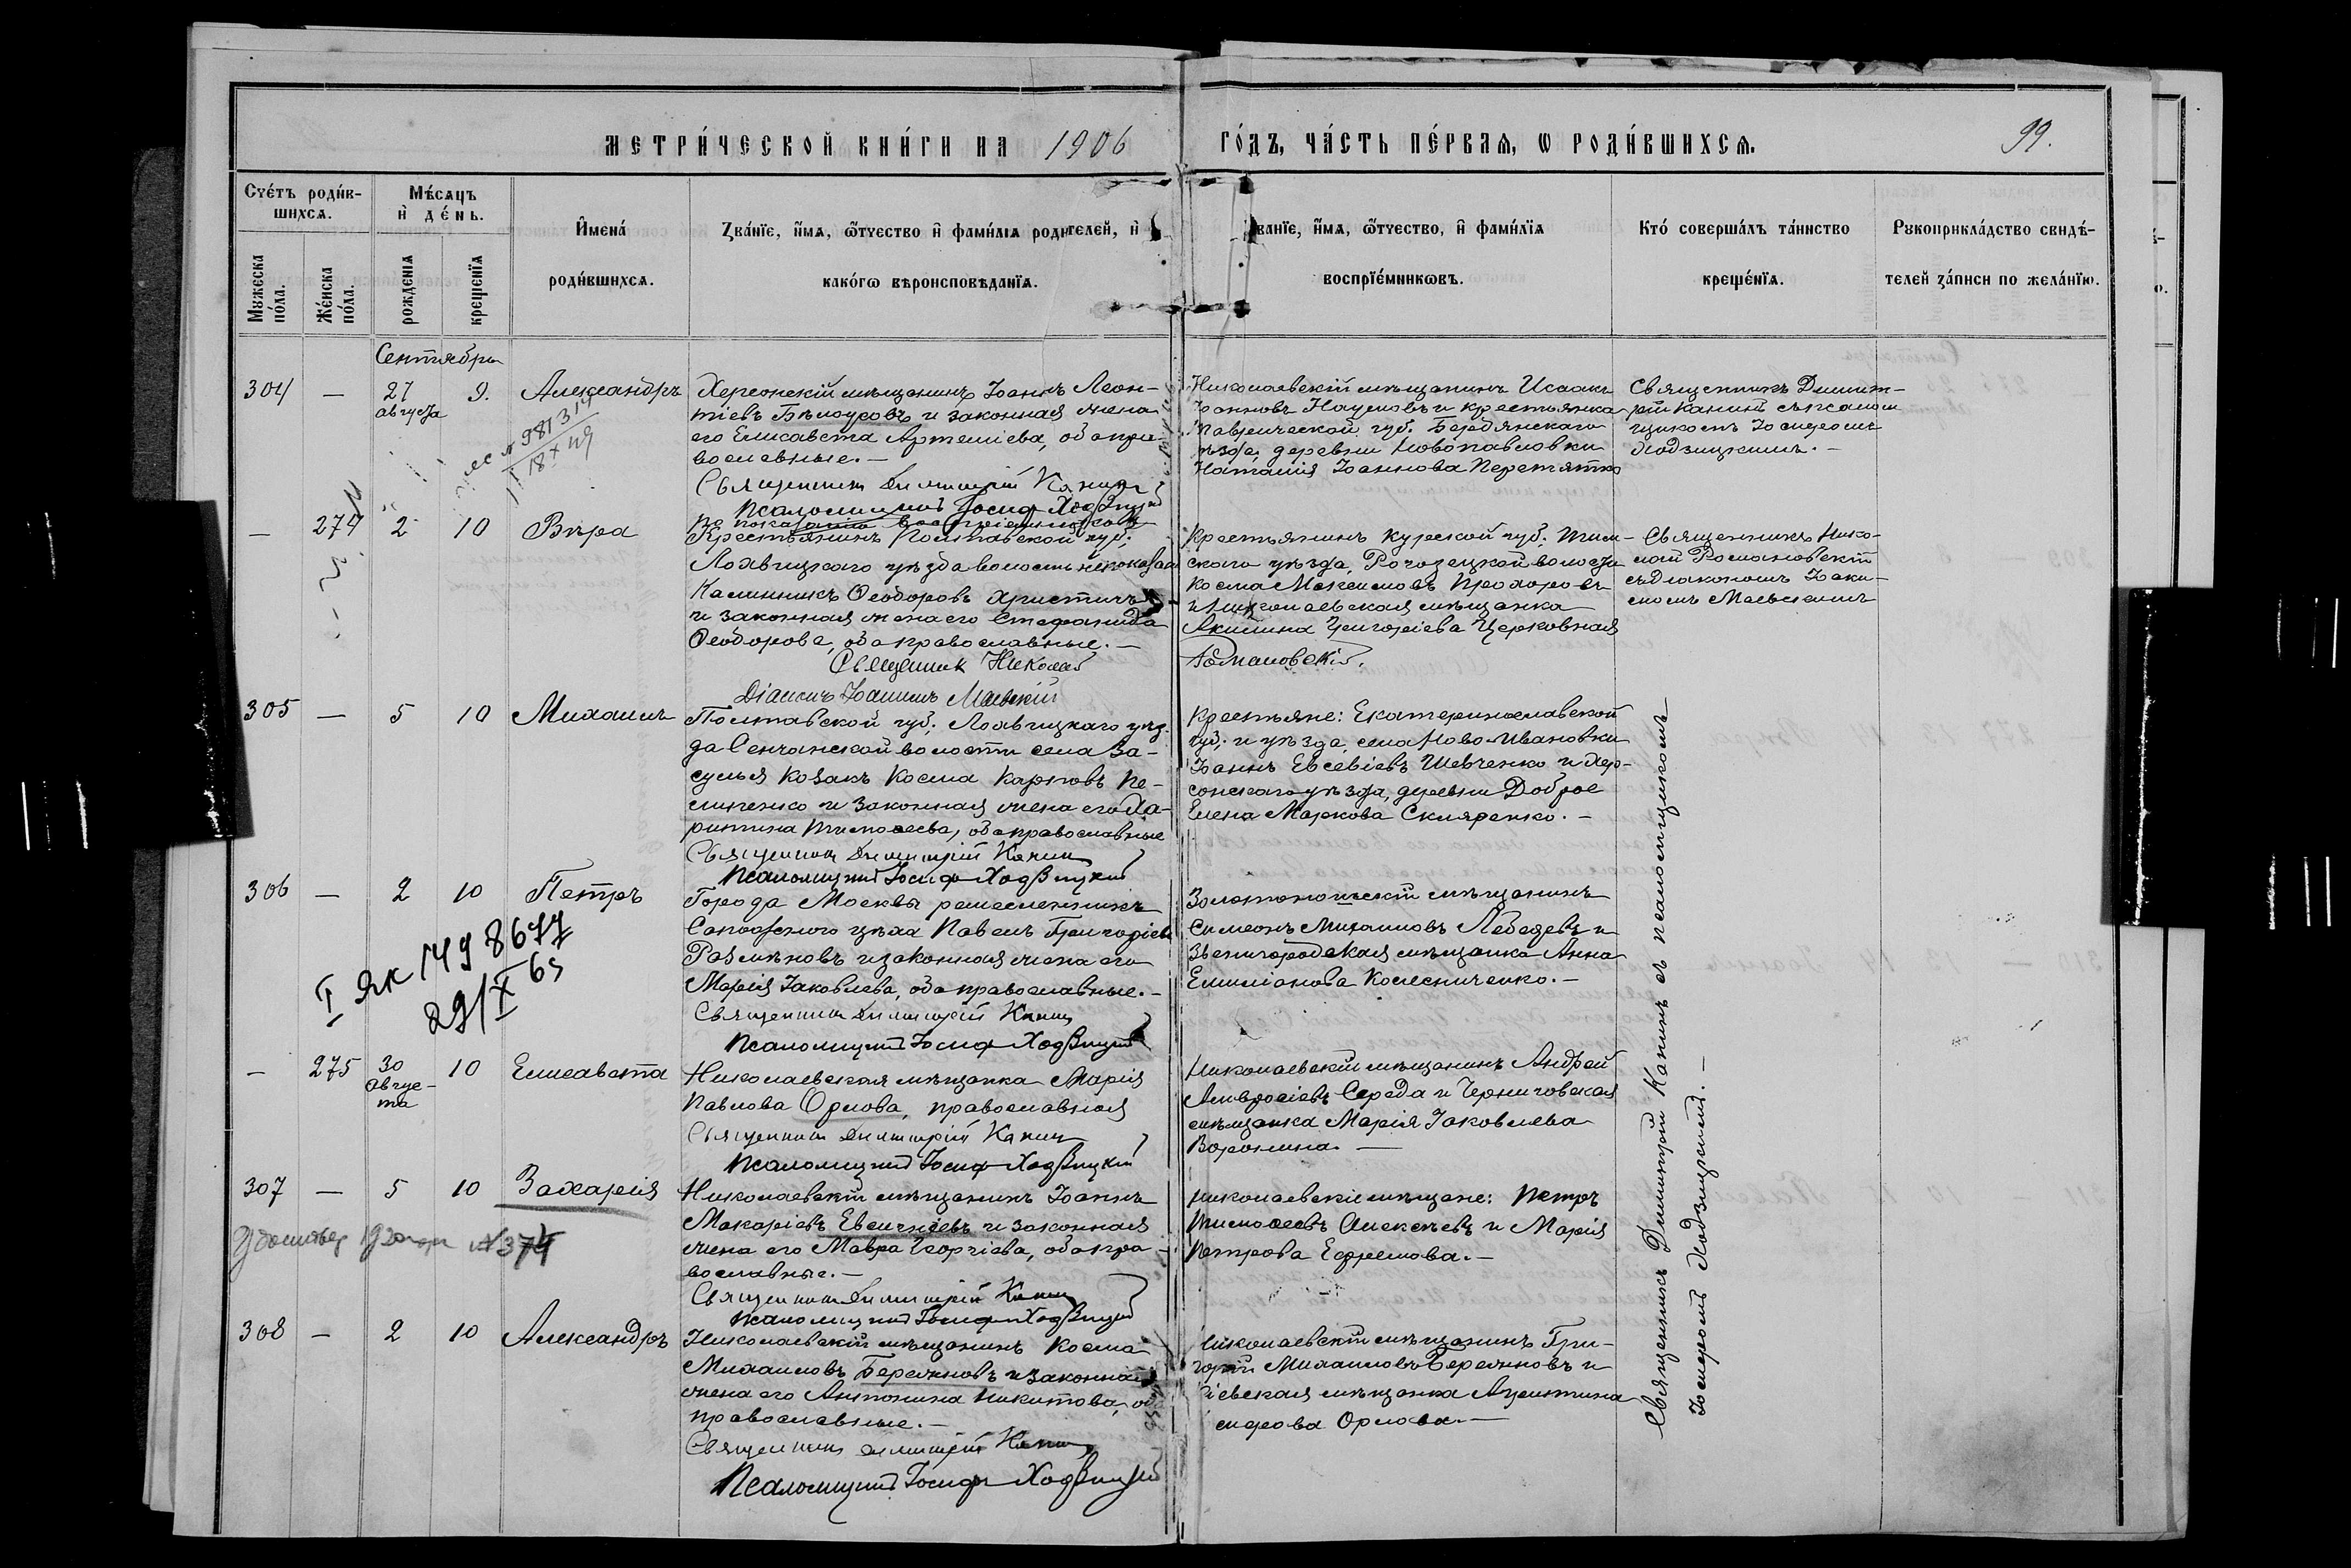 МЕТРИ́ЧЕСКОЙ КНИ́ГИ НА 1906
ГО́ДЪ, ЧА́СТЬ ПЕ́РВАЯ, Ѡ РОДИ́ВШИХСЯ.
99.
Сче́тъ роди́в-
шихся.
Му́жеска по́ла.
Же́нска по́ла.
Мѣ́сяцъ
и де́нь.
рожденія
крещенія
Имена́
роди́вшихся.
Зва́ніе, имя, о́тчество и фами́лія родителей, и
како́гѡ вѣроисповѣданія.
званіе, имя, о́тчество, и фами́лія
воспріе́мниковъ.
Кто́ соверша́лъ та́инство
креще́нія.
Рукоприкла́дство свидѣ́-
телей за́писи по жела́нію.
Сентябрь
304 — 27 августа 9. Александръ
Херсонскій мѣщанинъ Іоаннъ Леон-
тіевъ Бѣлоусовъ и законная жена
его Елисавета Артеміева, оба пра-
вославные. —
Священникъ Димитрій Канинъ
Псаломщикъ Іосифъ Ходзицкій
Николаевскій мѣщанинъ Исаакъ
Іоанновъ Наумовъ и крестьянка
Таврической губ. Бердянскаго
уѣзда, деревни Новопавловки
Наталія Іоаннова Перетятко
Священникъ Димит-
рій Канинъ съ псалом
щикомъ Іосифомъ
Ходзицкимъ. —
18 X 49
— 274 2 10 Вѣра
По показанію воспріемниковъ
Крестьянинъ Полтавской губ.
Лохвицкаго уѣзда волость не показана
Калинникъ Ѳеодоровъ Христичъ
и законная жена его Стефанида
Ѳеодорова, оба православные. —
Священникъ Николай
Романовскій.
Діаконъ Іоакимъ Маевскій
Крестьянинъ Курской губ. Тим-
скаго уѣзда, Рогозецкой волости
Косма Максимовъ Прохоровъ
и Николаевская мѣщанка
Акилина Григоріева Церковная
Священникъ Нико-
лай Романовскій
съ діакономъ Іоаки-
момъ Маевскимъ
305 — 5 10 Михаилъ
Полтавской губ. Лохвицкаго уѣз-
да Сенчанской волости села За-
сулья козакъ Косма Карповъ Пе-
липенко и законная жена его Ха-
ритина Тимоѳеева, оба православные
Священникъ Димитрій Канинъ
Псаломщикъ Іосифъ Ходзицкій
Крестьяне: Екатеринославской
губ. и уѣзда, села Ново-Ивановки
Іоаннъ Евсевіевъ Шевченко и Хер-
сонскаго уѣзда, деревни Доброе
Елена Маркова Скляренко. —
306 — 2 10 Петръ
Города Москвы ремесленникъ
Сапожнаго цѣха Павелъ Григоріевъ
Размѣновъ и законная жена его
Марія Іаковлева, оба православные. —
Священникъ Димитрій Канинъ
Псаломщикъ Іосифъ Ходзицкій
Золотоношскій мѣщанинъ
Симеонъ Михаиловъ Лебедевъ и
Звенигородская мѣщанка Анна
Емиліанова Колесниченко. —
I ЯК 1498677
29/X 65
— 275 30 Авгус-
та 10 Елисавета
Николаевская мѣщанка Марія
Павлова Орлова, православная
Священникъ Димитрій Канинъ
Псаломщикъ Іосифъ Ходзицкій
Николаевскій мѣщанинъ Андрей
Амвросіевъ Середа и Черниговская
мѣщанка Марія Іаковлева
Воронина —
307 — 5 10 Захарія
Николаевскій мѣщанинъ Іоаннъ
Макаріевъ Евсигнѣевъ и законная
жена его Мавра Георгіева, оба пра-
вославные. —
Священникъ Димитрій Канинъ
Псаломщикъ Іосифъ Ходзицкій
Николаевскіе мѣщане: Петръ
Тимоѳеевъ Алексѣевъ и Марія
Петрова Ефремова. —
№ 374
308 — 2 10 Александръ
Николаевскій мѣщанинъ Косма
Михаиловъ Бережновъ и законная
жена его Антонина Никитова, оба
православные. —
Священникъ Димитрій Канинъ
Псаломщикъ Іосифъ Ходзицкій
Николаевскій мѣщанинъ Гри-
горій Михаиловъ Бережновъ и
Кіевская мѣщанка
Орлова. —
Священникъ Димитрій Канинъ съ псаломщикомъ
Іосифомъ Ходзицкимъ. —